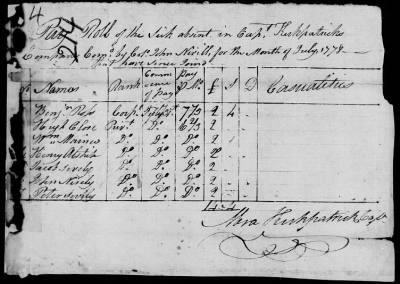 4
214
Pay Roll of the Sick absent in Capt. Kirkpatricks
Company Com'd by Col. John Nevill, for the Month of July 1778
that have Since Joind
Names Rank Comm ence of pay Pay P Mo. £ S D Casualties
Benj'n Ross Corp'l July 1st 7 1/3 2 4
Hugh Clore Priv't Do. 6 2/3 2
Wm Do. Do. 2
Henry Do. Do. Do. 2
Jacob Do. Do. Do. 2
John Do. Do. Do. 2
Peter Do. Do. Do. 2
14 4
Abra Kirkpatrick Capt